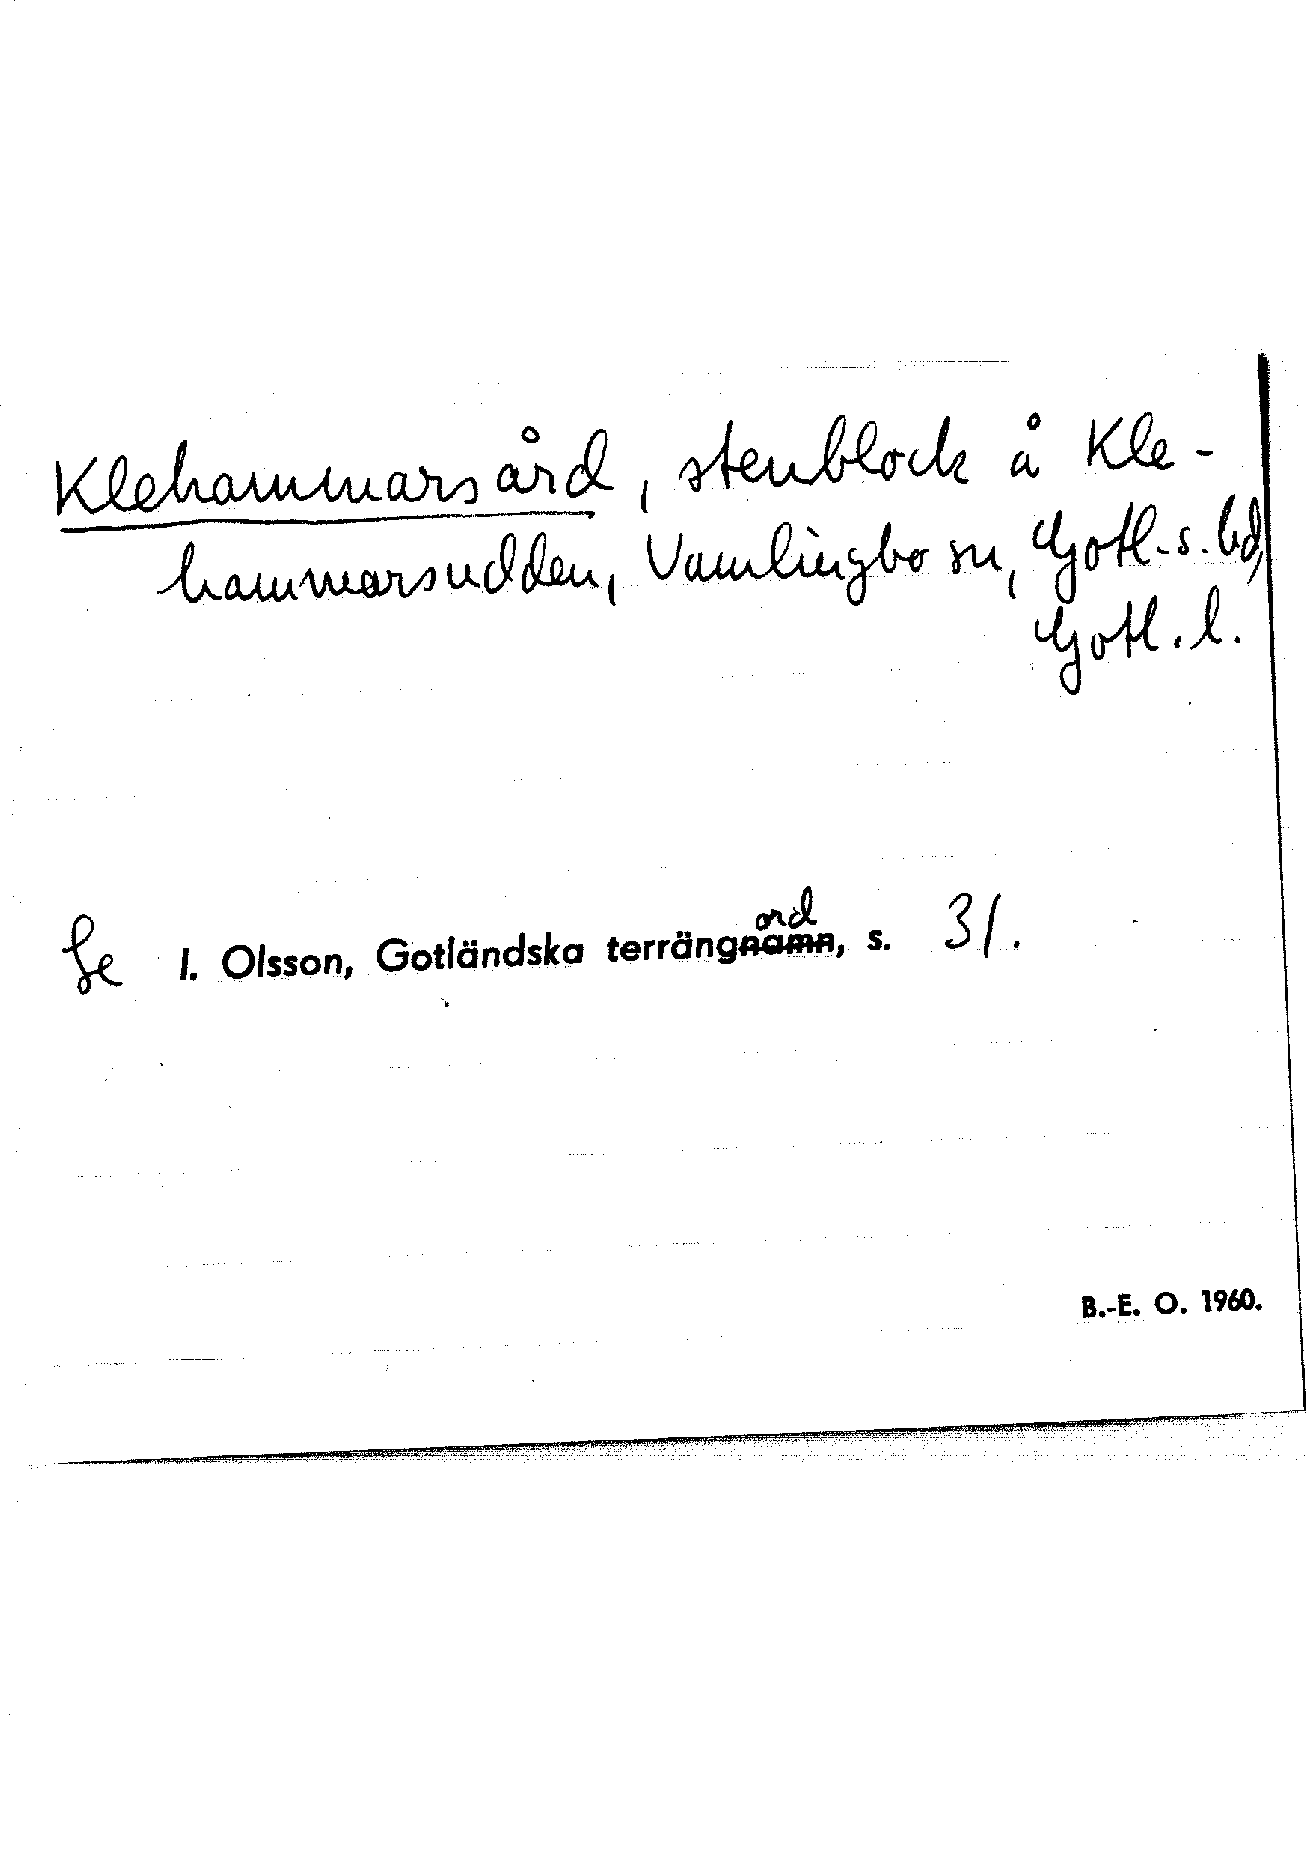 Klehammarsård, stenblock å Kle-
hammarsudden, Vamlingbo sn, Gotl. s. hd,
Gotl. l.
Se I. Olsson, Gotländska terrängord, s. 31.
B.-E. O. 1960.